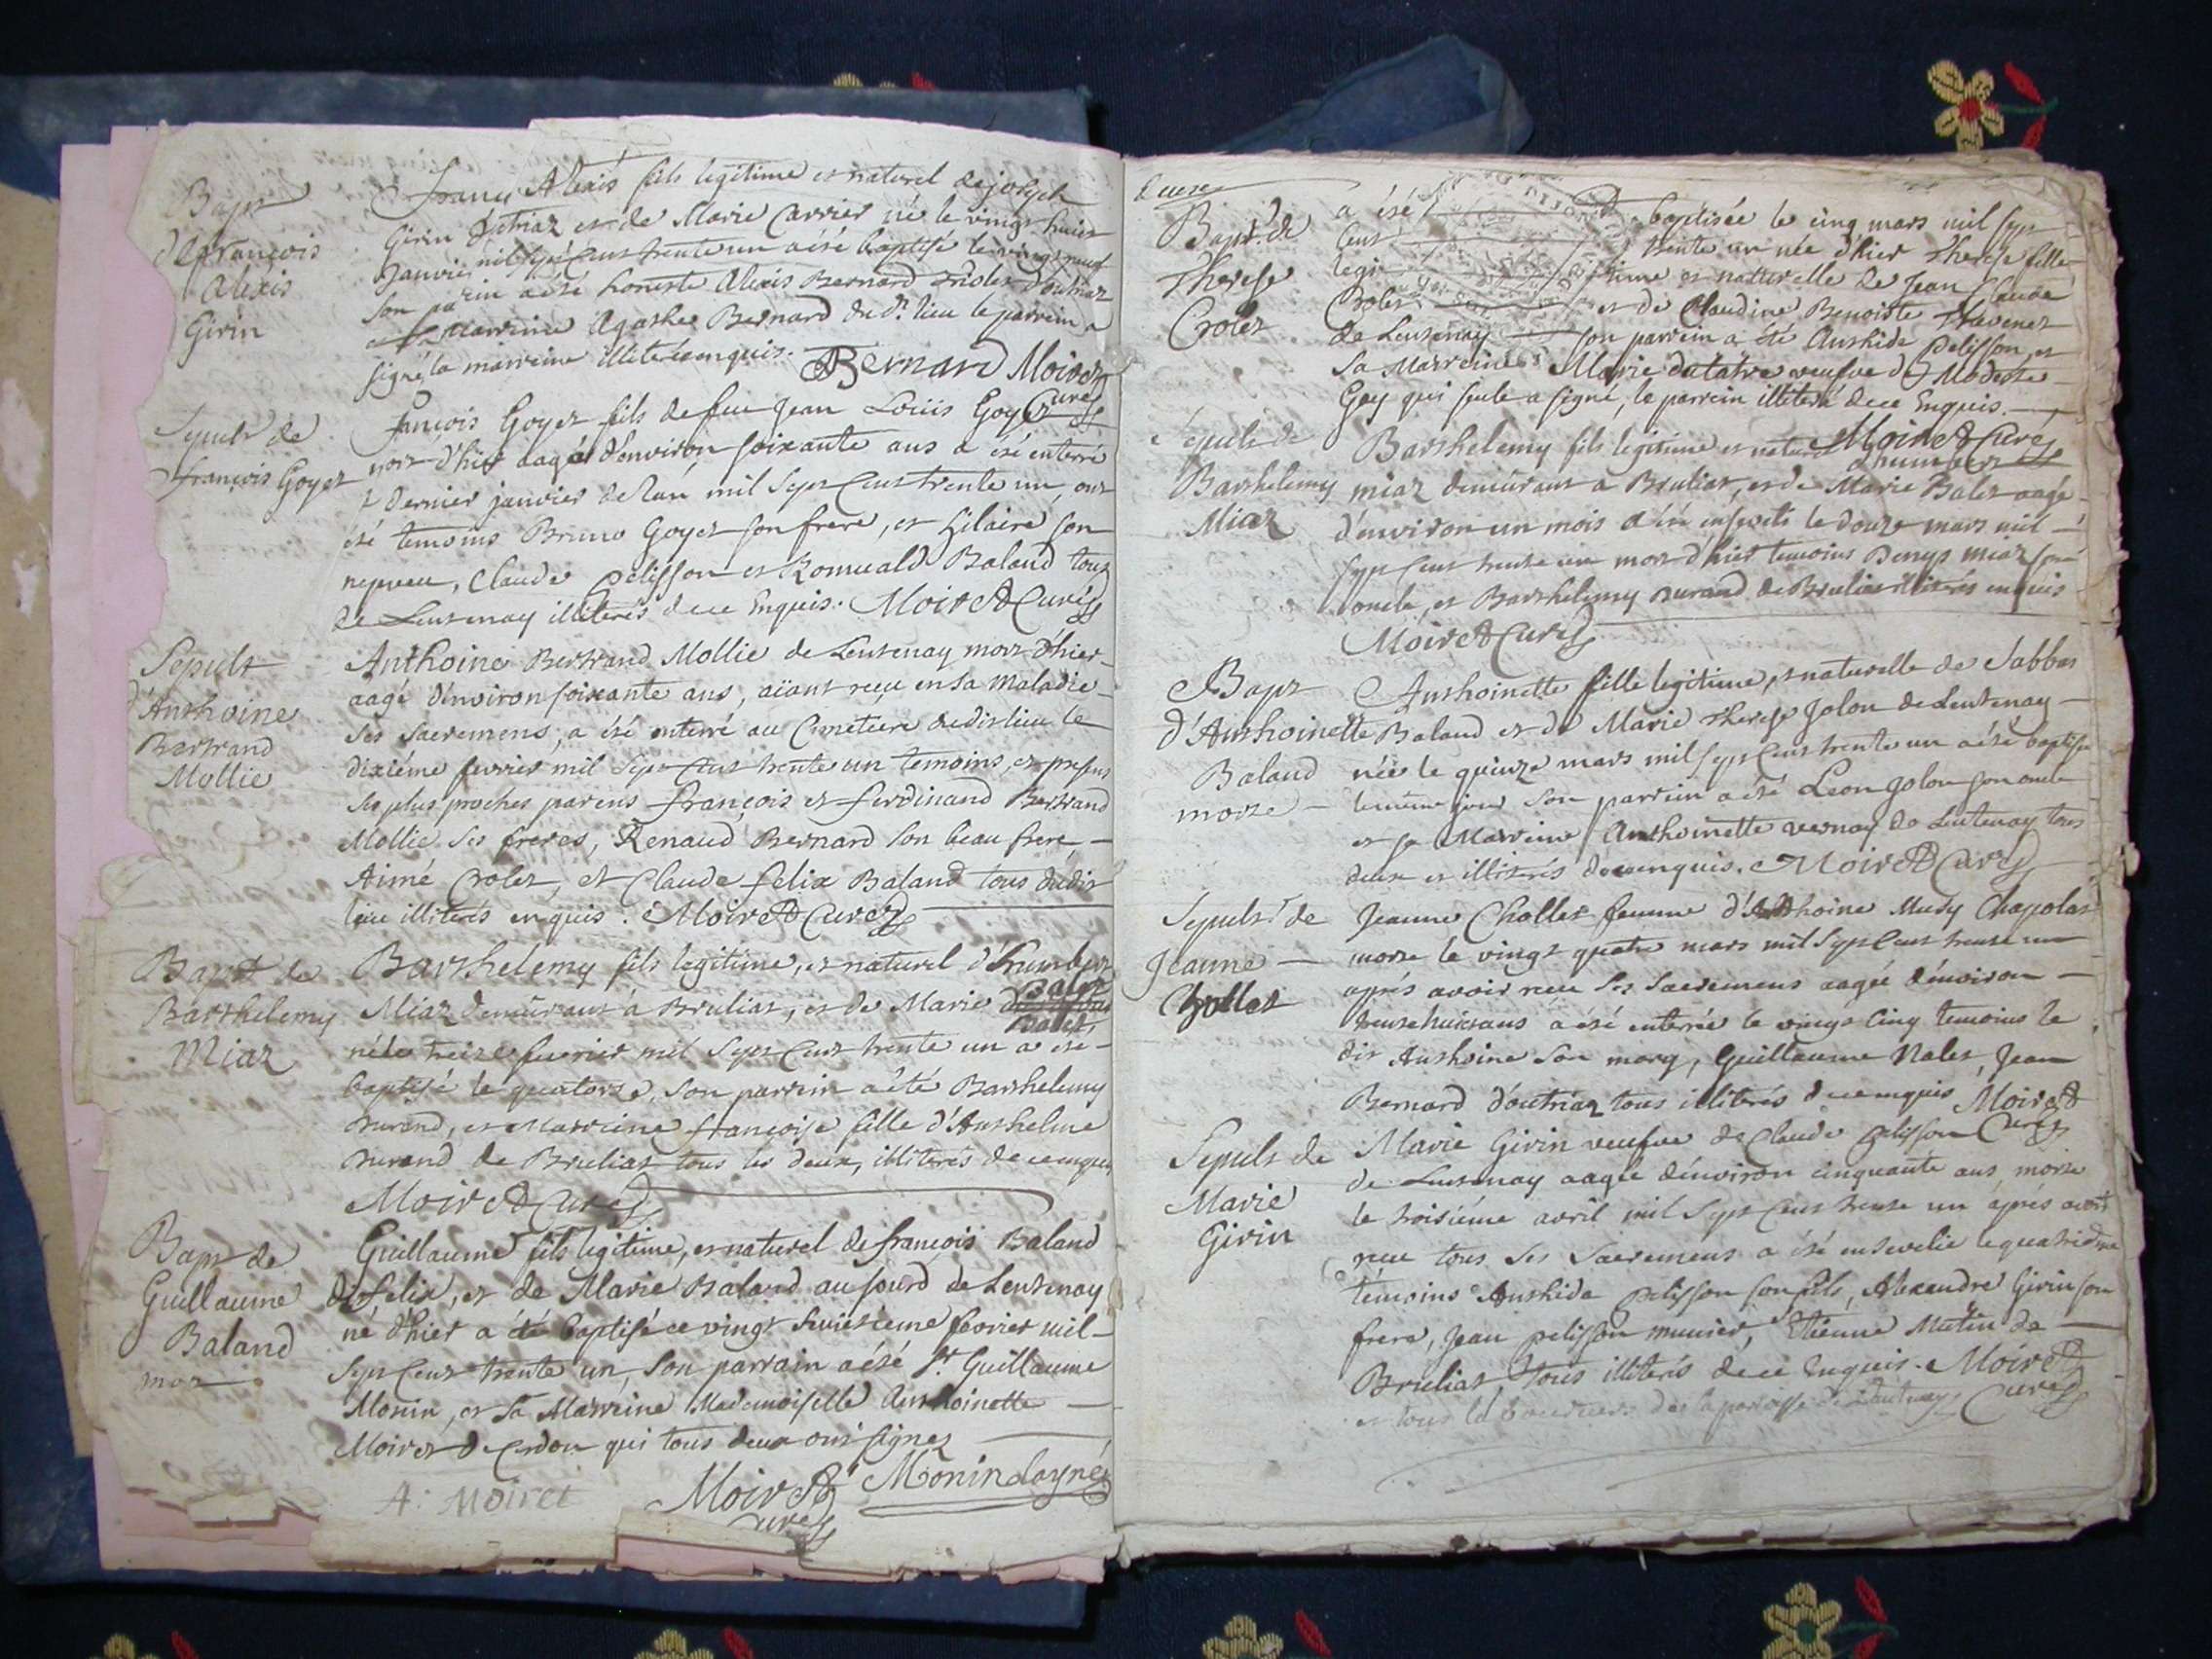 Bapt
de françois
Alexis
Girin
françois Alexis fils legitime et naturel de joseph
Girin d'utriaz et de Marie Carrier né le vingt huict
Janvier mil sept cent trente un a été baptisé le vingt neuf
son parin a été honeste Alexis Bernard d'outriaz
sa Marreine Agathe Bernard du dt lieu le parrein a
signé, la marreine illiterée enquis. Bernard Moiret
Curé
Sepult de
françois Goyet
françois Goyet fils de feu Jean Loüis Goyet
mort d'hier aagé d'environ soixante ans a été enterré
le dernier janvier de l'an mil sept cent trente un, ont
été temoins Bruno Goyet son frere, et hilaire son
nepveu, Claude pelisson et Romuald Baland tous
de Lentenay illiterés de ce Enquis. Moiret Curé
Sepult
d'Anthoine
Bertrand
Mollie
Anthoine Bertrand Mollie de Lentenay mort d'hier
aagé d'environ soixante ans, aïant reçu en sa Maladie
ses sacremens, a été enterré au Cimetiere dudit lieu le
dixiéme fevrier mil sept cent trente un temoins, et presens
ses plus proches parens françois et ferdinand Bertrand
Mollie ses freres, Renaud Bernard son beau frere,
Aimé Crolet, et Claude felix Baland tous dudit
lieu illiterés enquis. Moiret Curé
Bapt de
Barthelemy
Miaz
Barthelemy fils legitime, et naturel d'humbert
Miaz demeurant à Bruliat, et de Marie Balet
né le treize fevrier mil sept cent trente un a été
baptisé le quatorze, son parrein a été Barthelemy
Durand, et Marreine françoise fille d'Anthelme
Durand de Bruliat tous les deux, illiterés de ce enquis
Moiret Curé
Bapt de
Guillaume
Baland
mort
Guillaume fils legitime, et naturel de françois Baland
de felix, et de Marie Baland au sourd de Lentenay
né d'hier a été baptisé ce vingt février mil
sept cent trente un, son parrain a été Sr Guillaume
Monin, et sa Marreine Mademoiselle Anthoinette
Moiret de Cerdon qui tous deux ont signez
A. Moiret Moiret Monin
Curé
Bapt. de
Therese
Crolet
a été baptisée le cinq mars mil sept
cent trente un née d'hier Therese fille
legitime et naturelle de Jean Claude
Crolet et de Claudine Benoiste Thevenet
de Lentenay son parrein a été Anthide pelisson, et
sa Marreine Marie veufve de Modeste
Goy qui seule a signé, le parrein illiteré de ce Enquis.
Moiret Curé
Sepult de
Barthelemy
Miaz
Barthelemy fils legitime et naturel d'humbert
miaz demeurant a Bruliat, et de Marie Balet aagé
d'environ un mois a été enseveli le douze mars mil
sept cent trente un mort d'hier temoins Denys miaz son
oncle, et Barthelemy Durand de Bruliat illiterés enquis
Moiret Curé
Bapt
d'Anthoinette
Baland
morte
Anthoinette fille legitime, et naturelle de Sabbas
Baland et de Marie Therese Jolon de Lentenay
née le quinze mars mil sept cent trente un a été baptisée
le même jour son parrein a été Leon Jolon son oncle
et sa Marreine Anthoinette vernay de Lentenay tous
deux et illiterés de ce enquis. Moiret Curé
Sepult de
Jeanne
Chollet
Jeanne Chollet femme d'Anthoine Musy Chapolat
morte le vingt quatre mars mil sept cent trente un
aprés avoir reçu ses sacremens aagée d'environ
trente huict ans a été enterrée le vingt cinq temoins le
dit Anthoine son mary, Guillaume Nalet, Jean
Bernard d'outriaz tous illiterés de ce enquis Moiret
Curé
Sepult de
Marie
Girin
Marie Girin veufve de Claude pelisson
de Lentenay aagée d'environ cinquante ans, morte
le troisiéme avril mil sept cent trente un aprés avoir
reçu tous ses sacremens a été ensevelie le quatriéme
témoins Anthide pelisson son fils, Alexandre Girin son
frere, Jean pelisson munier, Etienne Mutin de
Bruliat tous illiterés de ce Enquis. Moiret
et tous de la paroisse de Lantenay Curé